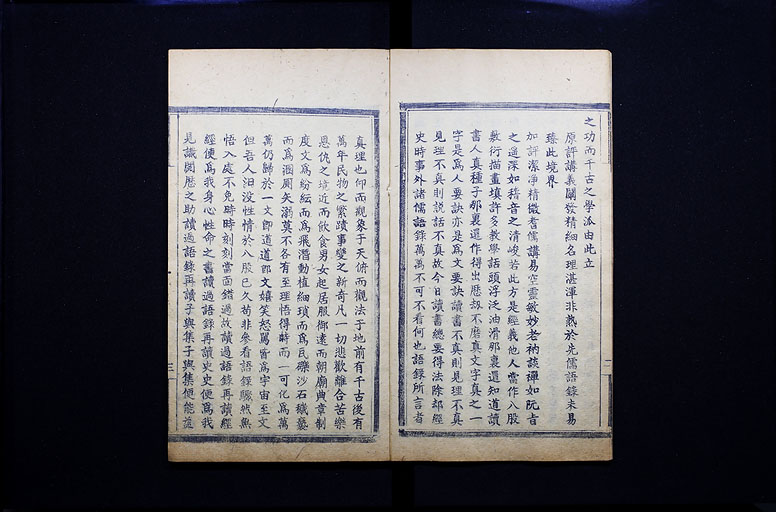 之功而千古之學派由此立
原評講義闢發精細名理湛渾非熟於先儒語錄未易
臻此境界
加評潔凈精微耆儒講易空靈敏妙老衲談禪如阮吉
之遥深如稽音之清峻若此方是經義他人當作八股
敷衍描畫填許多教學話頭浮泛油滑那裏還知道讀
書人真種子那裏還作得出歷刼不磨真文字真之一
字是為人要訣亦是為文要訣讀書不真則見理不真
見理不真則説話不真故今日讀書總要得法除却經
史時事外諸儒語錄萬萬不可不看何也語錄所言者
真理也仰而觀象于天俯而觀法于地前有千古後有
萬年民物之繁蹟事變之新奇凡一切悲歡離合苦樂
恩仇之境近而飲食男女起居服御遠而朝廟典章制
度文為紛紜而為飛潛動植細瑣而為瓦礫沙石穢褻
而為溷圊矢溺莫不各有至理悟得時而一可化為萬
萬仍歸於一文即道道即文嬉笑怒罵皆為宇宙至文
但吾人汨没性情於八股已久苟非參看語錄驟然無
悟入處不免時時刻刻當面錯過故讀過語錄再讀經
經便為我身心性命之書讀過語錄再讀史史便為我
見識閱歷之助讀過語錄再讀子與集子與集便能蓝